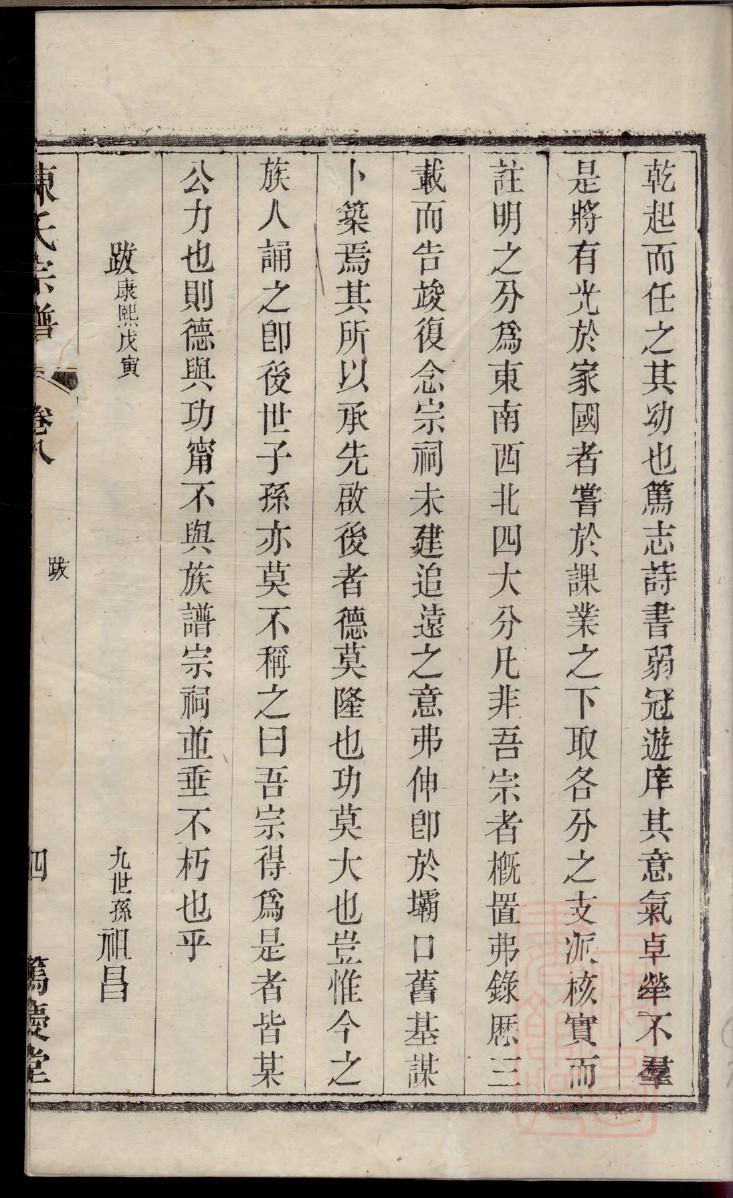 乾起而任之其幼也篤志詩書弱冠遊庠其意氣卓犖不羣
是將有光於家國者嘗於課業之下取各分之支派核實而
註明之分爲東南西北四大分凡非吾宗者概置弗錄歷三
載而告竣復念宗祠未建追遠之意弗伸卽於壩口舊基謀
卜築焉其所以承先啟後者德莫隆也功莫大也豈惟今之
族人誦之卽後世子孫亦莫不稱之曰吾宗得爲是者皆某
公力也則德與功甯不與族譜宗祠並垂不朽也乎
跋康熙戊寅
九世孫祖昌
陳氏宗譜
卷八
跋
四
篤慶堂